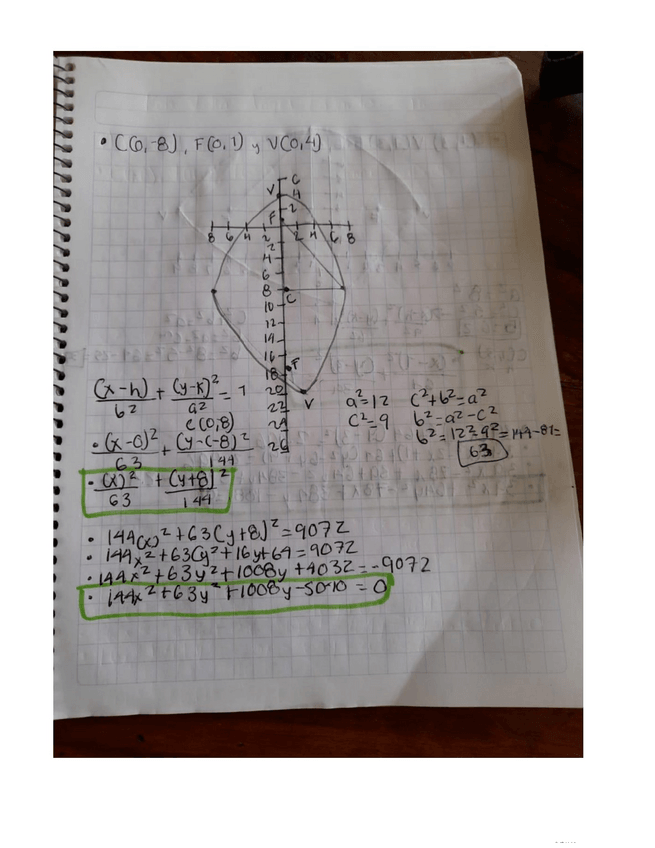 • C(0,-8), F(0,1) y V(0,4)
6
V 4
2
F
8 6 4 2 2 4 6 8
2
4
6
8 C
10
12
14
16
18 F
20
22 V
24
26
(x-h)² + (y-k)² = 1
b² a²
C(0,8)
a²=12 c²+b²=a²
c²=9 b²=a²-c²
b²=12²-9²=144-81=
63
• (x-0)² + (y-(-8)²
63 144
• (x)² + (y+8)²
63 144
• 144(x)²+63(y+8)²=9072
• 144x²+63(y²+16y+64=9072
• 144x²+63y²+1008y+4032=-9072
• 144x²+63y²+1008y-5040=0